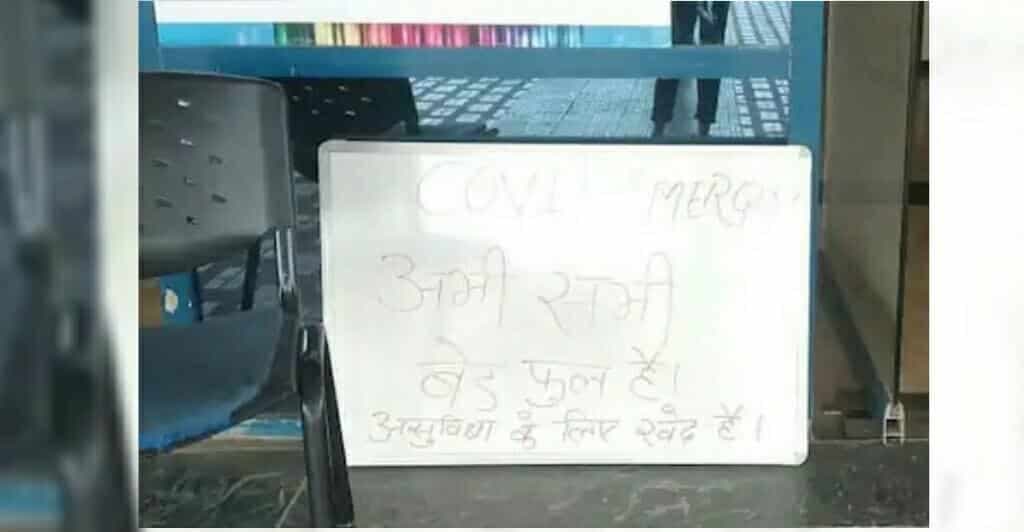 COVI MERG
अभी सभी
बेड फुल है।
असुविधा के लिए खेद है।